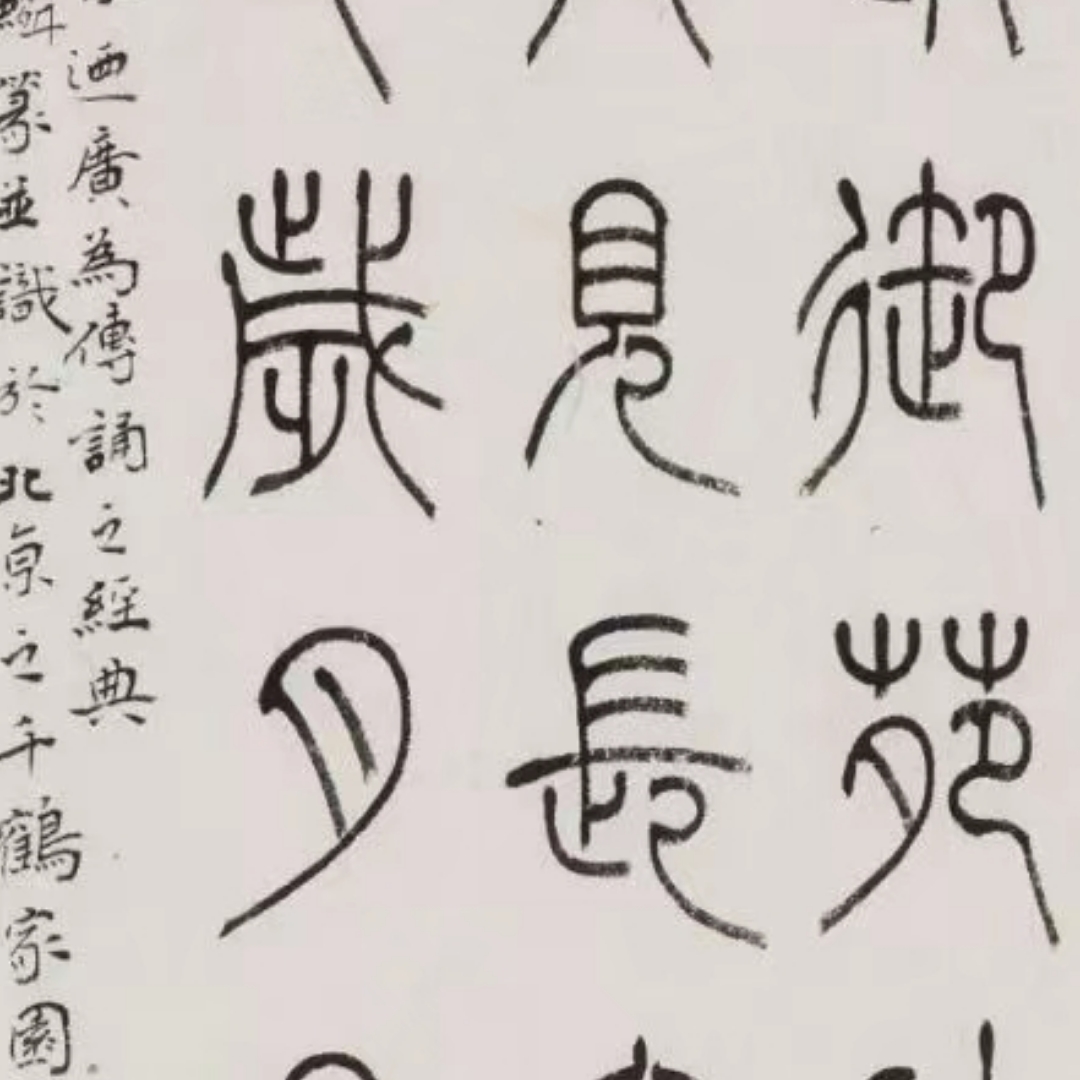 御苑
見長
歲月
迺廣為傳誦之經典
篆並識於北京之千鶴家園